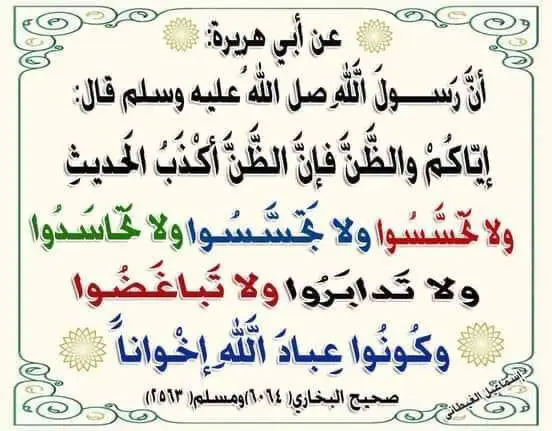 عن أبي هريرة:
أنَّ رَسولَ اللَّهِ صل الله عليه وسلم قال:
إيّاكُمْ والظَّنَّ فإنَّ الظَّنَّ أكْذَبُ الحَديثِ
ولا تحَسَّسُوا ولا تجَسَّسُوا ولا تحَاسَدُوا
ولا تَدابَرُوا ولا تَباغَضُوا
وكُونُوا عِبادَ اللَّهِ إخْواناً
صحيح البخاري( ٦٠٦٤)ومسلم( ٢٥٦٣)
إسماعيل الغيطاني